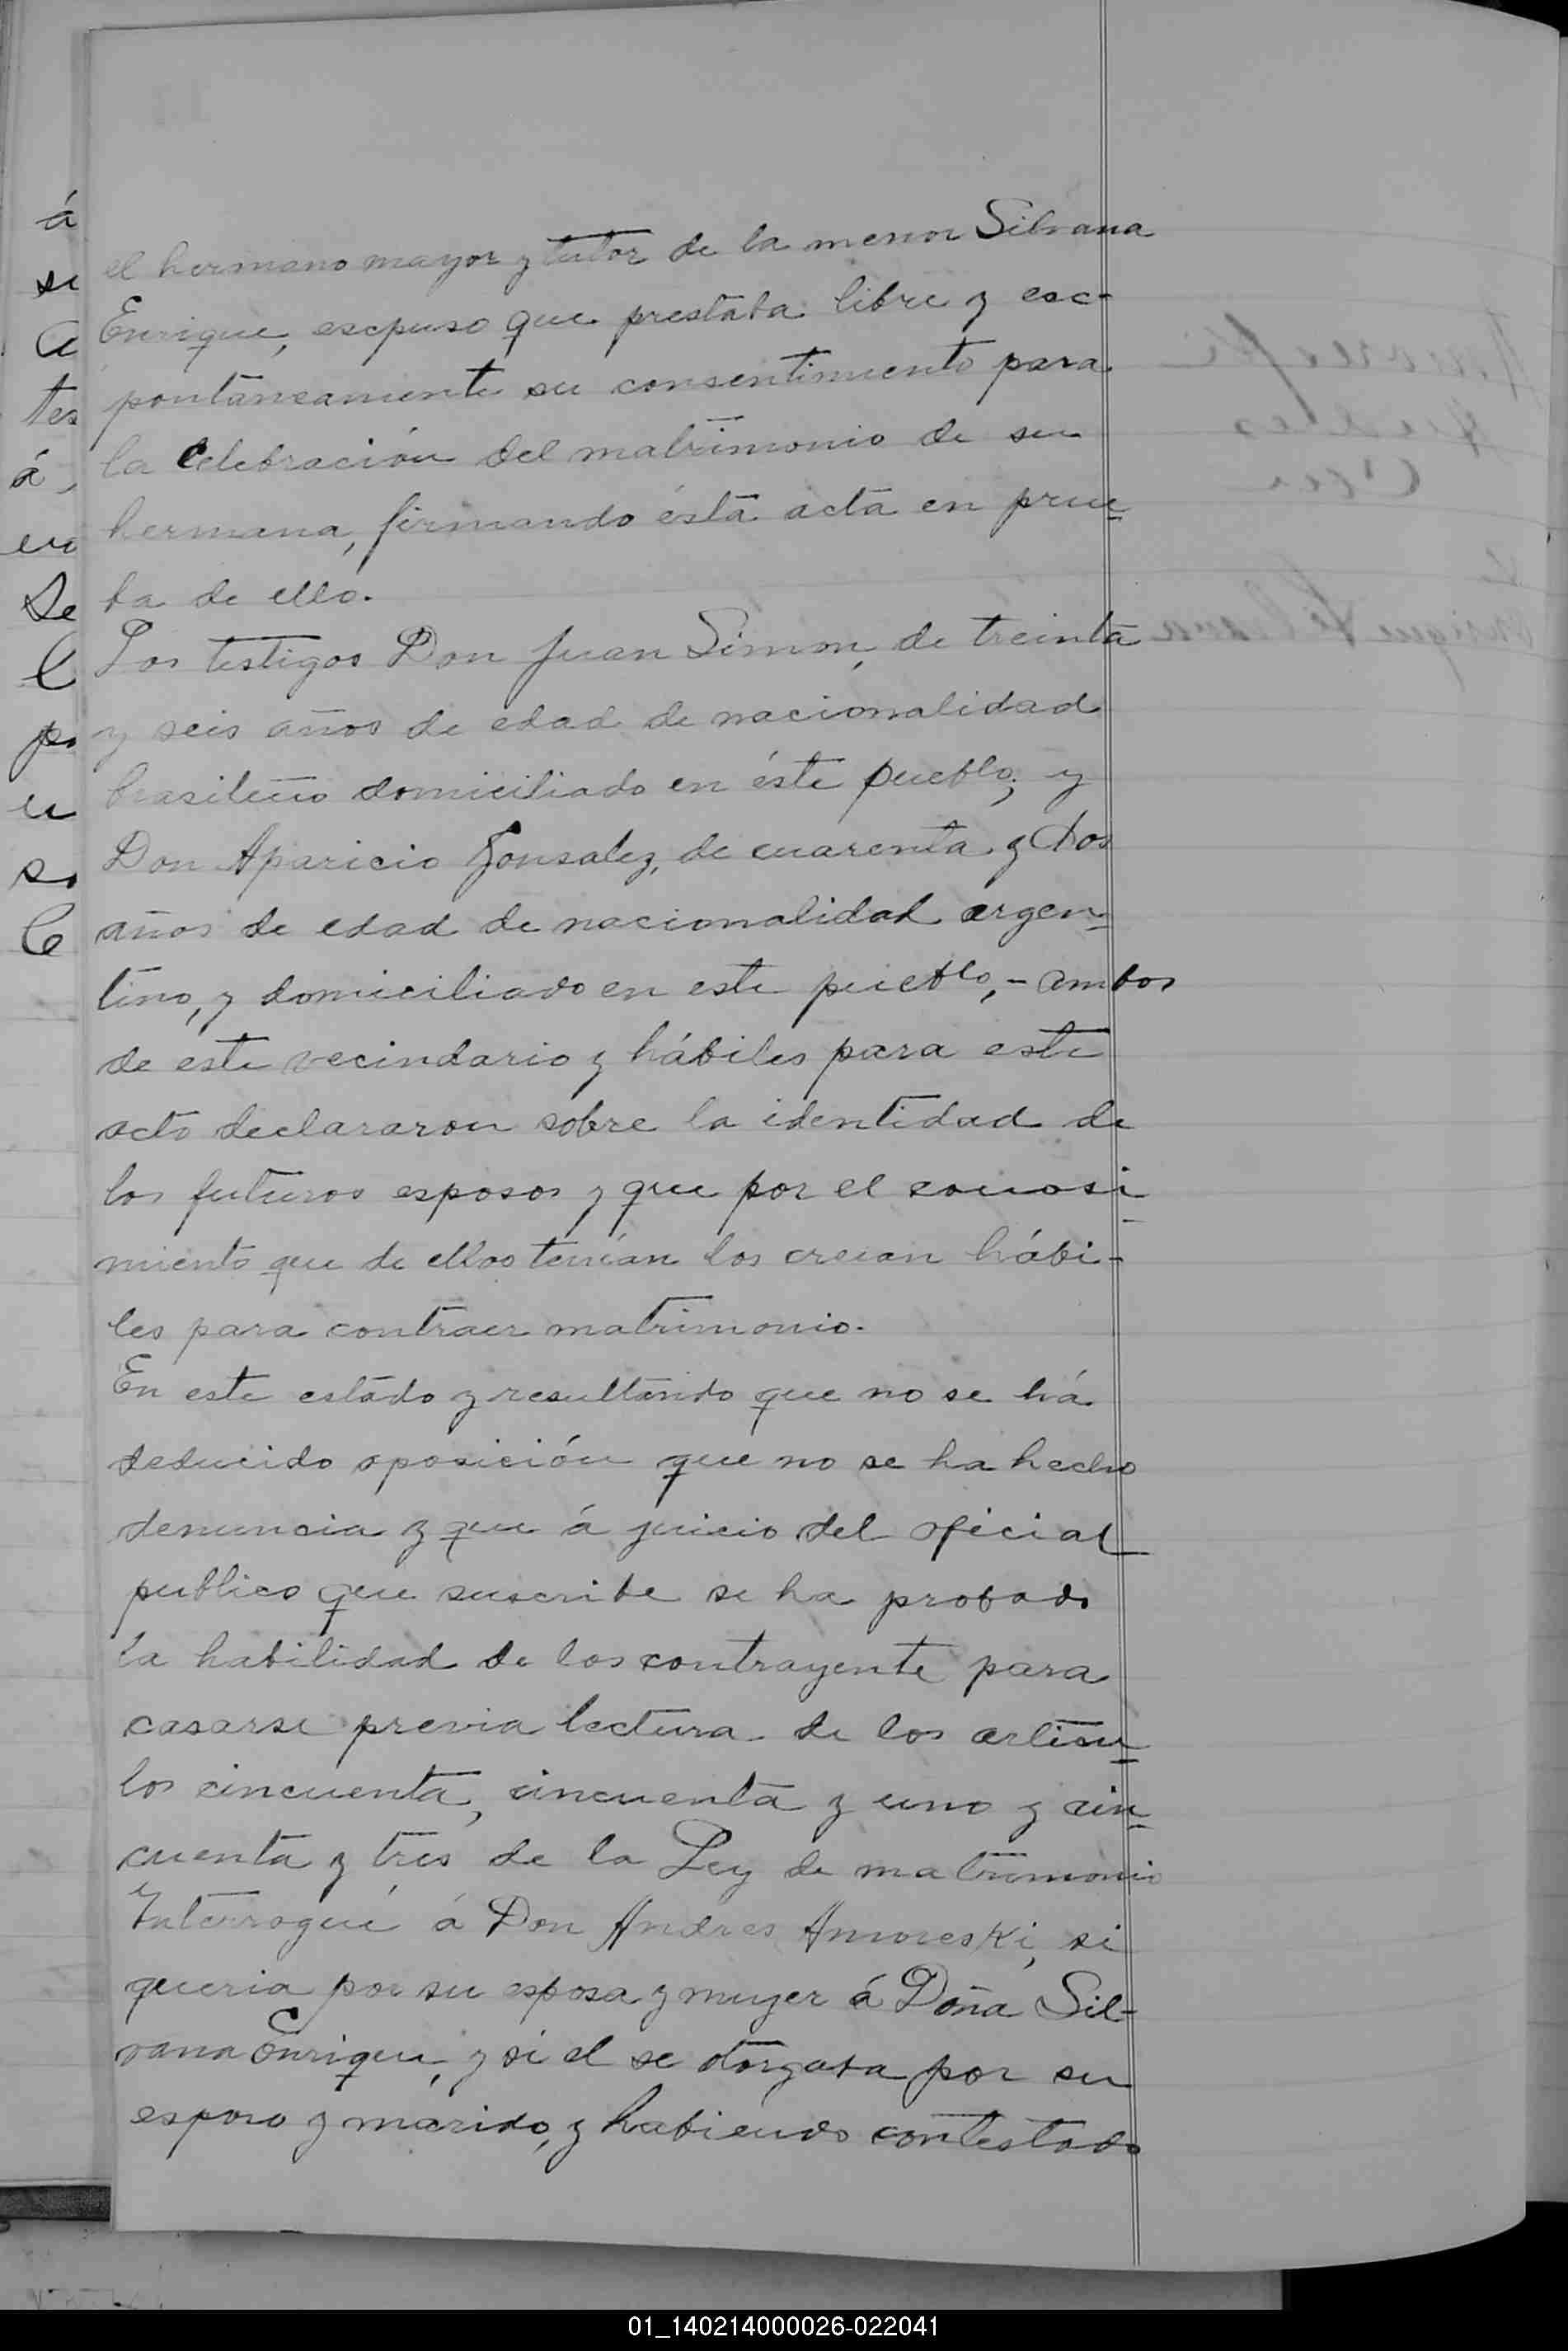 el hermano mayor y tutor de la menor Silvana
Enrique, escpuso que prestaba libre y esc-
pontaneamente su consentimiento para
la celebración del matrimonio de su
hermana, firmando ésta acta en prue
ba de ello.
Los testigos Don Juan Simon, de treinta
y seis años de edad de nacionalidad
brasileño domiciliado en éste pueblo; y
Don Aparicio Gonsalez, de cuarenta y dos
años de edad de nacionalidad argen-
tino, y domiciliado en este pueblo,- ambos
de este vecindario y hábiles para este
acto declararon sobre la identidad de
los futuros esposos y que por el conosi
miento que de ellos tenían los creian hábi-
les para contraer matrimonio.
En este estado y resultando que no se há
deducido oposición que no se ha hecho
denuncia y que á juicio del oficial
publico que suscribe se ha probado
la habilidad de los contrayente para
casarse previa lectura de los articu
los cincuenta, cincuenta y uno y cin
cuenta y tres de la Ley de matrimonio
Interrogué á Don Andres Amoreski, si
queria por su esposa y mujer á Doña Sil-
vana Enrique, y si el se otorgaba por su
esposo y marido, y habiendo contestado
á
se
a
tes
á,
en
De
l
u
01_140214000026-022041